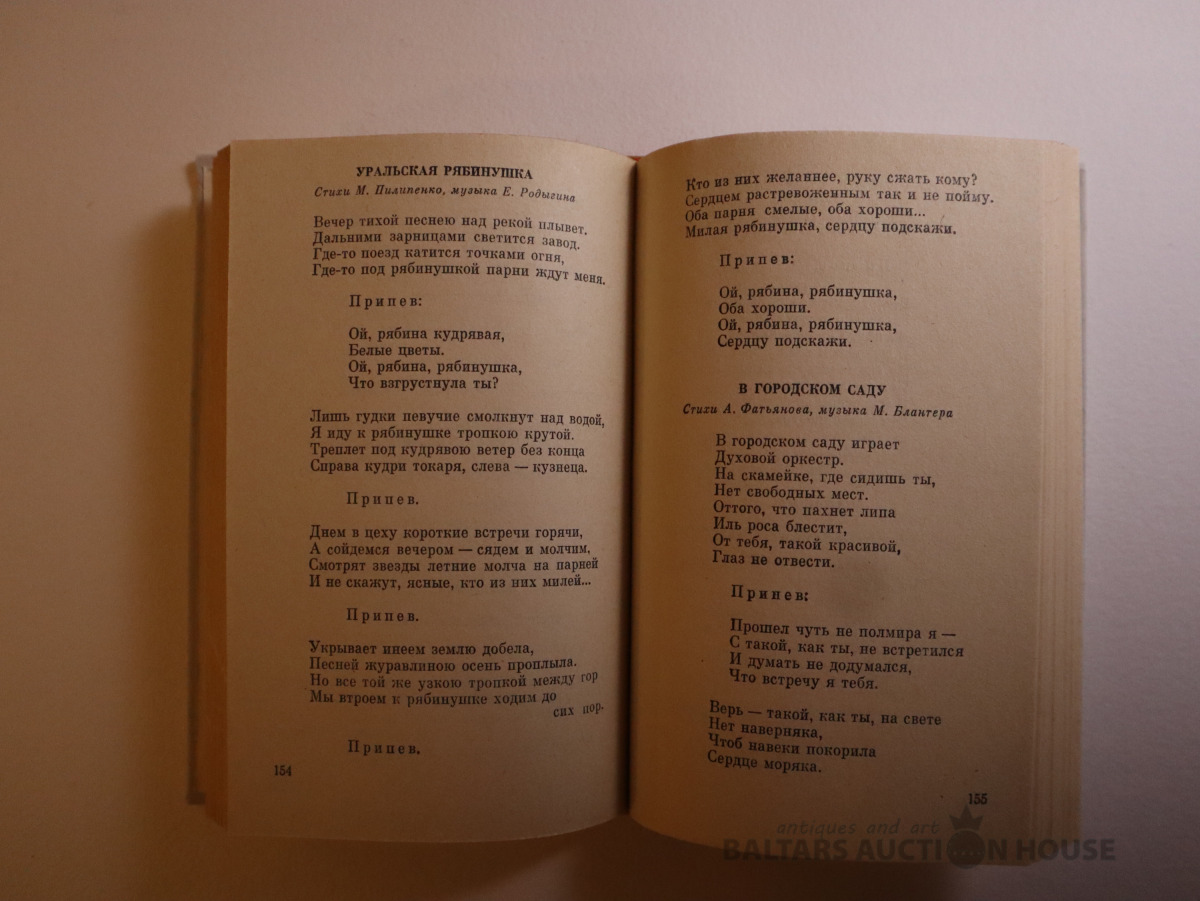 УРАЛЬСКАЯ РЯБИНУШКА
Стихи М. Пилипенко, музыка Е. Родыгина
Вечер тихой песнею над рекой плывет.
Дальними зарницами светится завод.
Где-то поезд катится точками огня,
Где-то под рябинушкой парни ждут меня.
Припев:
Ой, рябина кудрявая,
Белые цветы.
Ой, рябина, рябинушка,
Что взгрустнула ты?
Лишь гудки певучие смолкнут над водой,
Я иду к рябинушке тропкою крутой.
Треплет под кудрявою ветер без конца
Справа кудри токаря, слева — кузнеца.
Припев.
Днем в цеху короткие встречи горячи,
А сойдемся вечером — сядем и молчим.
Смотрят звезды летние молча на парней
И не скажут, ясные, кто из них милей...
Припев.
Укрывает инеем землю добела,
Песней журавлиною осень проплыла.
Но все той же узкою тропкой между гор
Мы втроем к рябинушке ходим до
сих пор.
Припев.
154
Кто из них желаннее, руку сжать кому?
Сердцем растревоженным так и не пойму.
Оба парня смелые, оба хороши...
Милая рябинушка, сердцу подскажи.
Припев:
Ой, рябина, рябинушка,
Оба хороши.
Ой, рябина, рябинушка,
Сердцу подскажи.
В ГОРОДСКОМ САДУ
Стихи А. Фатьянова, музыка М. Блантера
В городском саду играет
Духовой оркестр.
На скамейке, где сидишь ты,
Нет свободных мест.
Оттого, что пахнет липа
Иль роса блестит,
От тебя, такой красивой,
Глаз не отвести.
Припев:
Прошел чуть не полмира я —
С такой, как ты, не встретился
И думать не додумался,
Что встречу я тебя.
Верь — такой, как ты, на свете
Нет наверняка,
Чтоб навеки покорила
Сердце моряка.
155
antiques and art
BALTARS AUCTION HOUSE